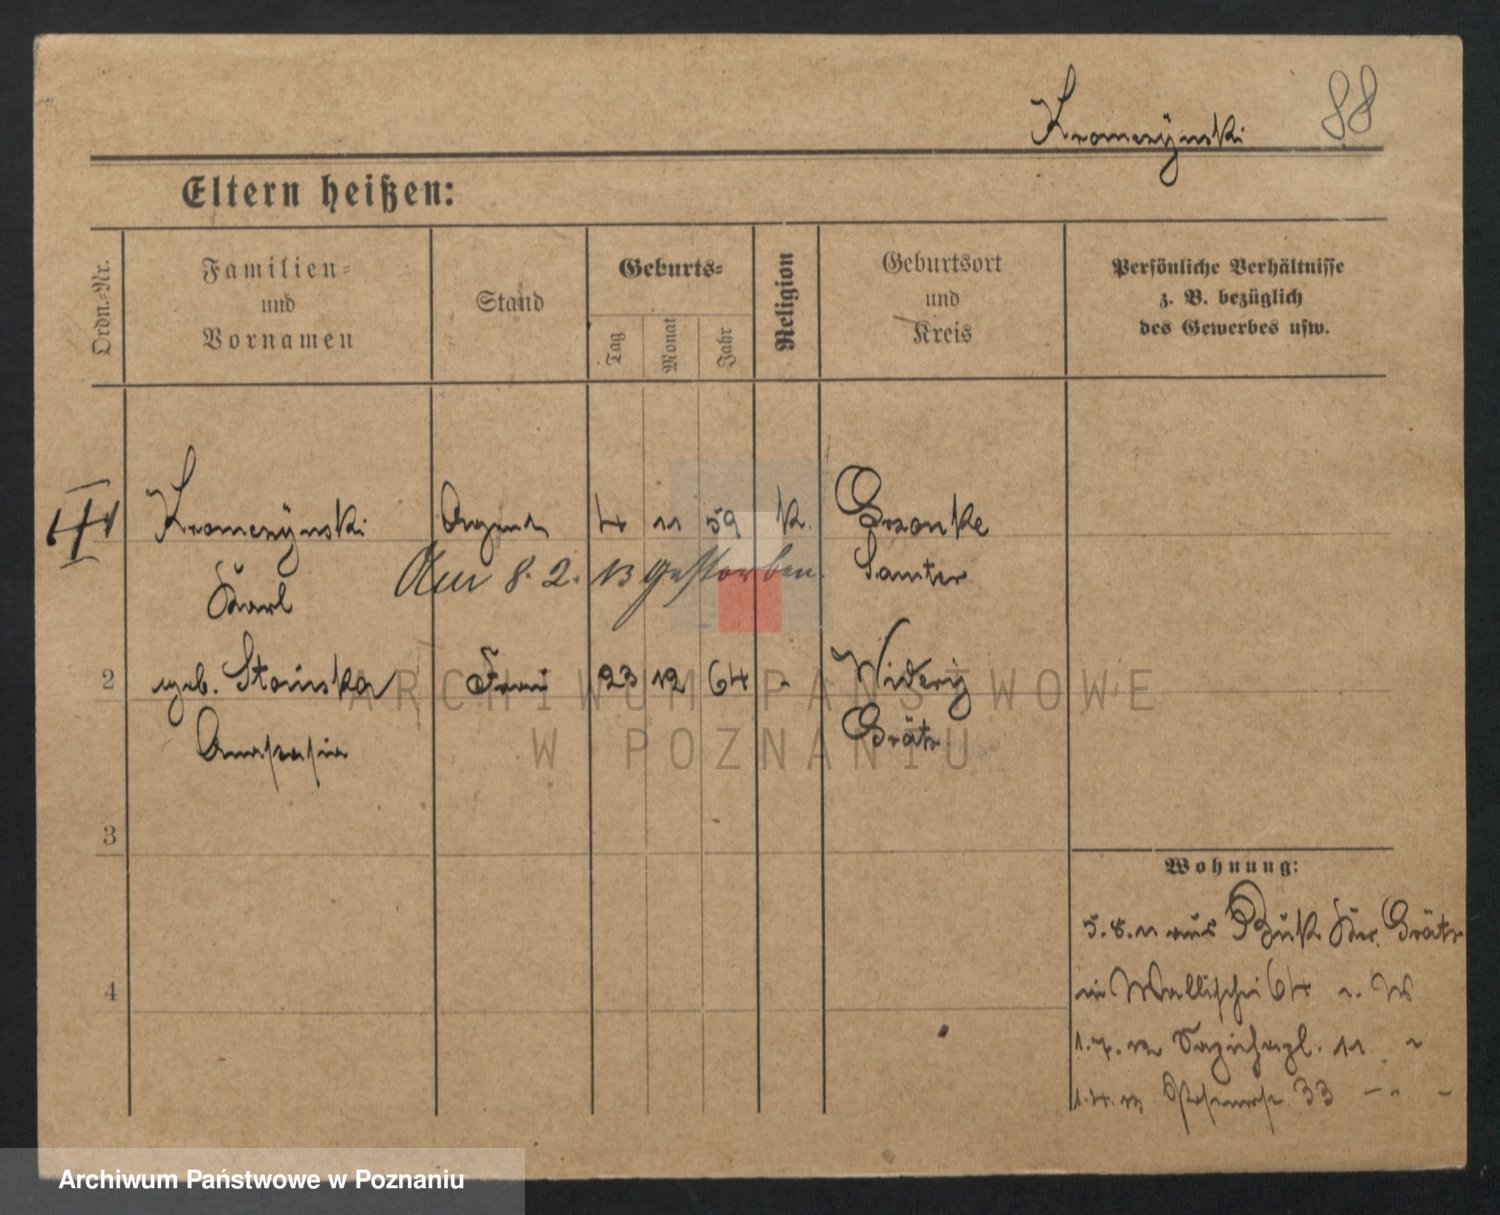 Kromczÿnski 88
Eltern heißen:
Ordn.=Nr.
Familien=
und
Vornamen
Stand
Geburts=
Tag
Monat
Jahr
Religion
Geburtsort
und
Kreis
Persönliche Verhältnisse
z. B. bezüglich
des Gewerbes usw.
Kromczÿnski Agent 4 11 59 k. Brzonke
Karl Am 8. 2. 13 gestorben. Samter
2 geb. Stainska Frau 23 12 64 Widerÿ
Anastasia Grätz
3
Wohnung:
5.8.11 aus Buk Kr. Grätz
4
in Wallischei 64
1.7.12 11
1.4.13 33
ARCHIWUM PAŃSTWOWE
W POZNANIU
Archiwum Państwowe w Poznaniu